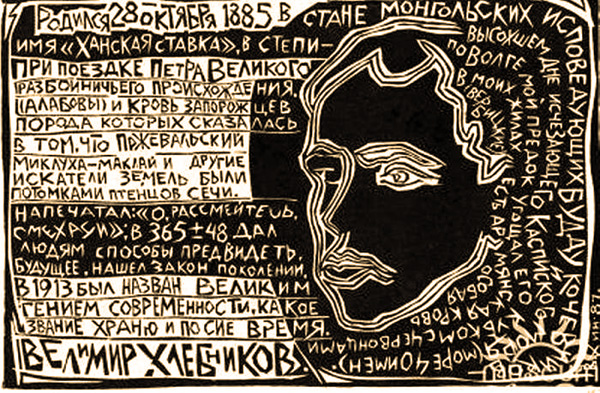 РОДИЛСЯ 28 ОКТЯБРЯ 1885 В СТАНЕ МОНГОЛЬСКИХ ИСПОВЕДУЮЩИХ БУДДУ КОЧЕВНИКОВ
ИМЯ «ХАНСКАЯ СТАВКА», В СТЕПИ —
ВЫСОХШЕМ ДНЕ ИСЧЕЗАЮЩЕГО КАСПИЙСКОГО
(МОРЕ 40 ИМЕН).
ПРИ ПОЕЗДКЕ ПЕТРА ВЕЛИКОГО
ПО ВОЛГЕ МОЙ ПРЕДОК УГОЩАЛ ЕГО КУБКОМ С ЧЕРВОНЦАМИ
РАЗБОЙНИЧЬЕГО ПРОИСХОЖДЕНИЯ.
В МОИХ ЖИЛАХ ЕСТЬ АРМЯНСКАЯ КРОВЬ
(АЛАБОВЫ) И КРОВЬ ЗАПОРОЖЦЕВ
ОСОБАЯ
ПОРОДА КОТОРЫХ СКАЗАЛАСЬ
В ТОМ, ЧТО ПРЖЕВАЛЬСКИЙ
МИКЛУХА-МАКЛАЙ И ДРУГИЕ
ИСКАТЕЛИ ЗЕМЕЛЬ БЫЛИ
ПОТОМКАМИ ПТЕНЦОВ СЕЧИ.
НАПЕЧАТАЛ: «О, РАССМЕЙТЕСЬ,
СМЕХАЧИ»; В 365±48 ДАЛ
ЛЮДЯМ СПОСОБЫ ПРЕДВИДЕТЬ
БУДУЩЕЕ, НАШЕЛ ЗАКОН ПОКОЛЕНИЙ,
В 1913 БЫЛ НАЗВАН ВЕЛИКИМ
ГЕНИЕМ СОВРЕМЕННОСТИ, КАКОЕ
ЗВАНИЕ ХРАНЮ И ПО СИЕ ВРЕМЯ.
ВЕЛИМИР ХЛЕБНИКОВ.